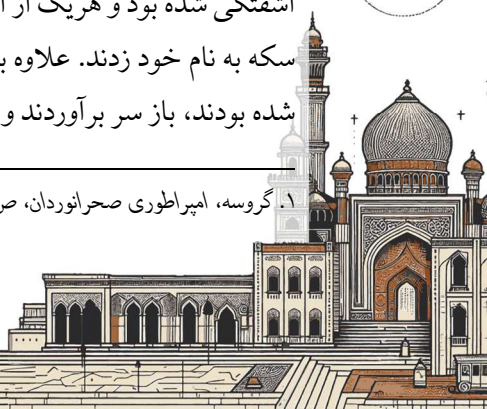 آشفتگی شده بود و هریک از
سکه به نام خود زدند. علاوه
شده بودند، باز سر برآوردند و
۱. گروسه، امپراطوری صحرانوردان،